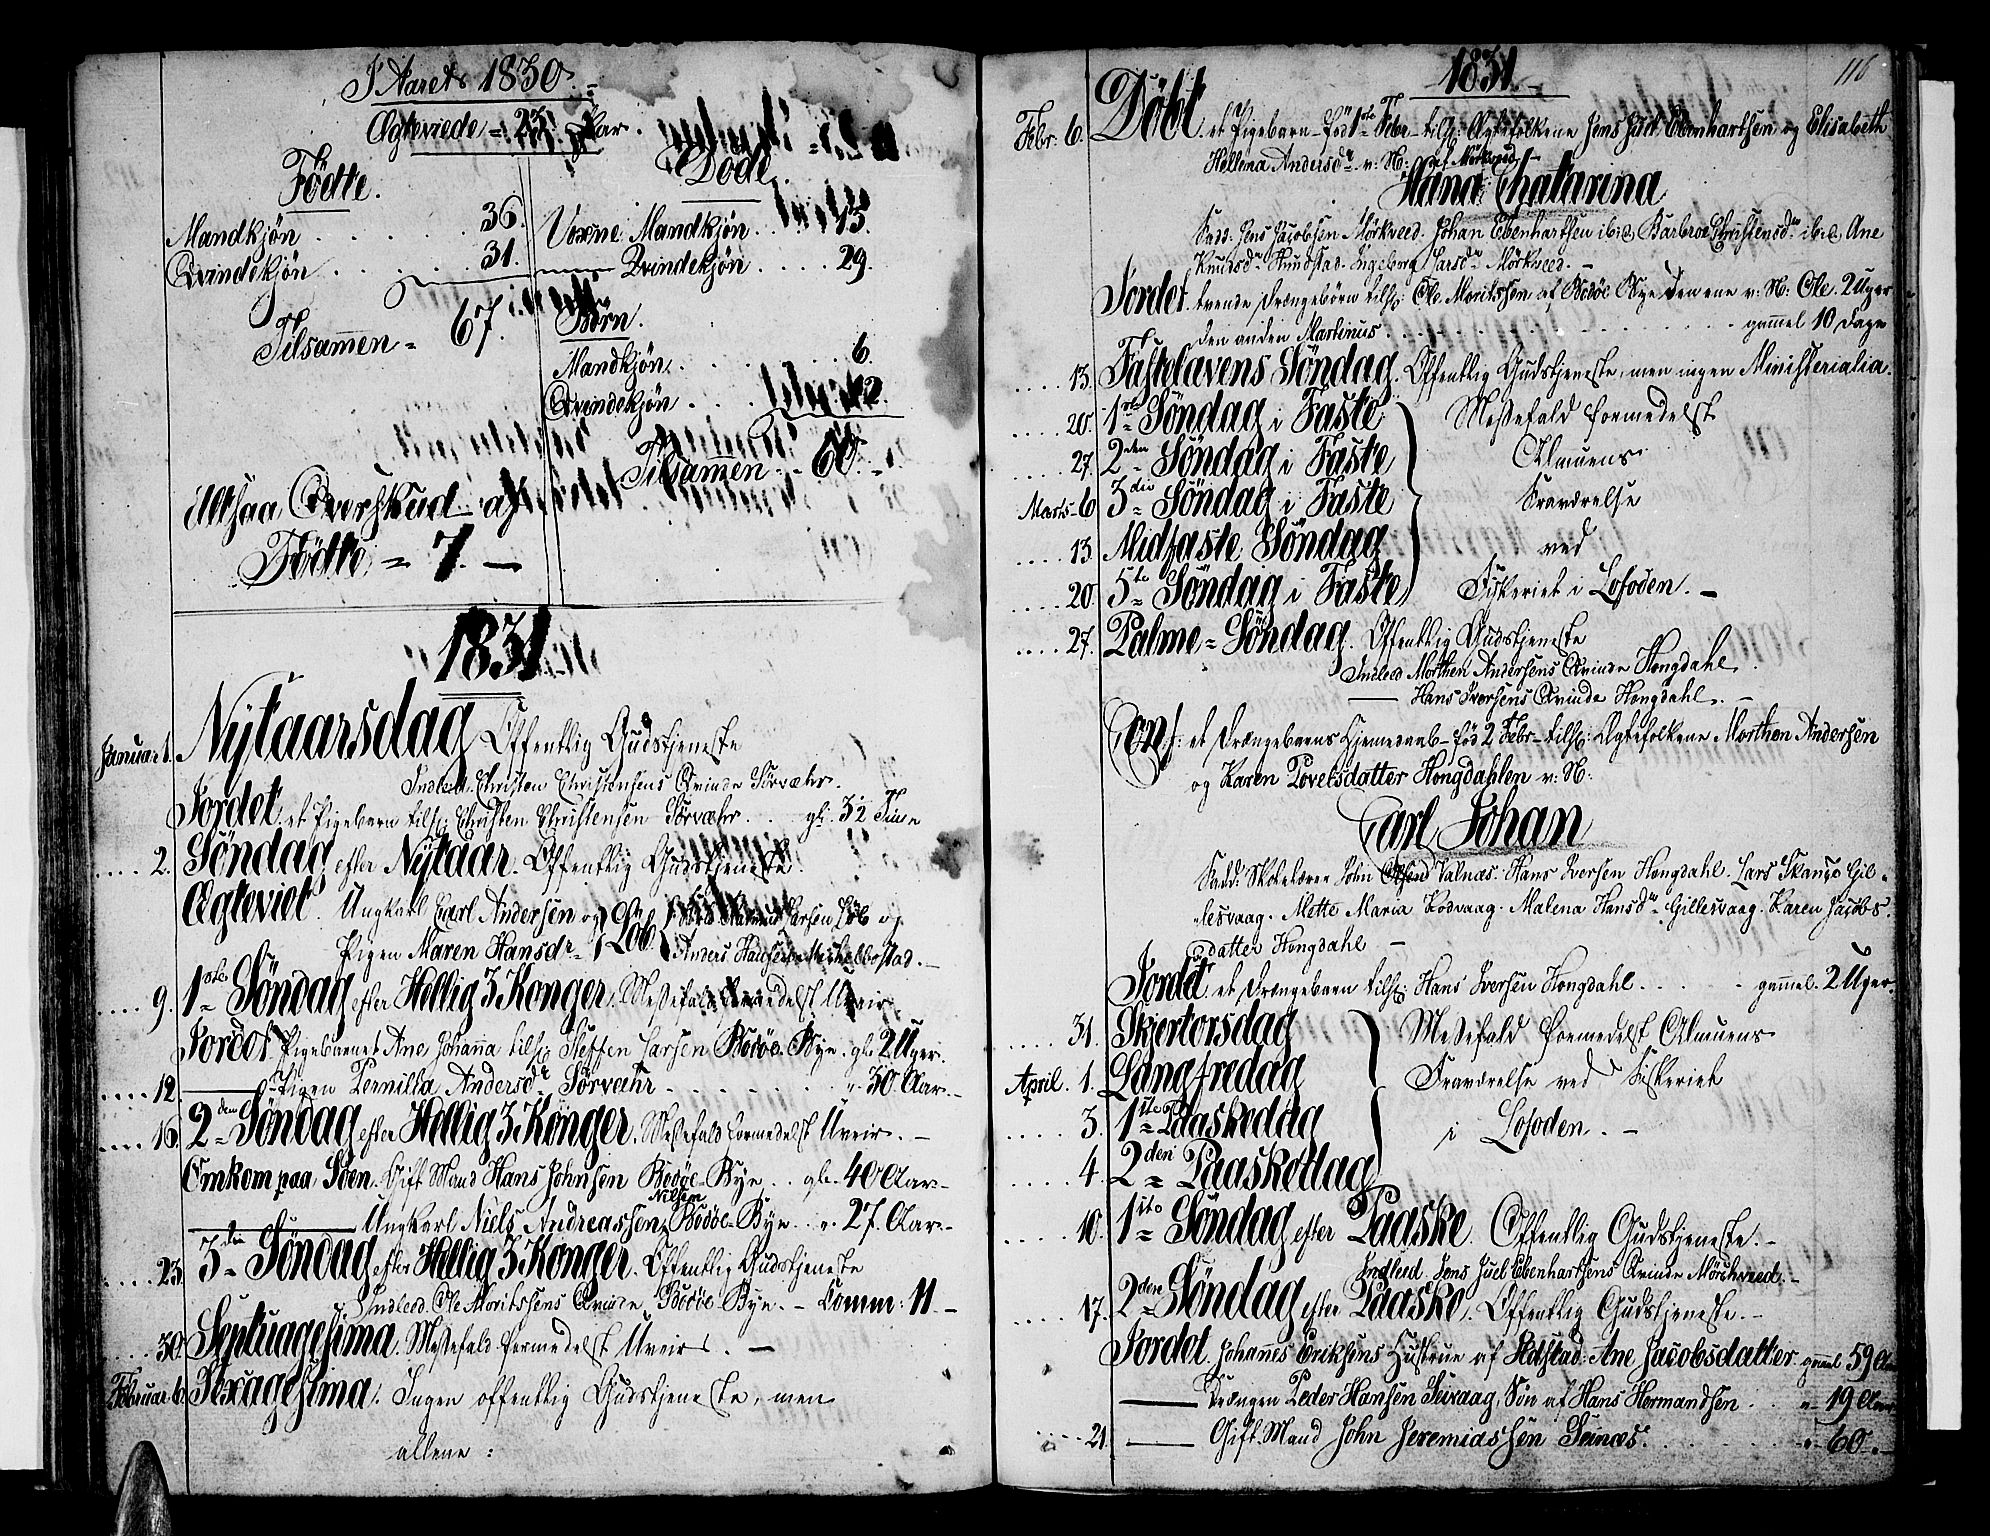 I Aaret 1830.
Ægteviede = 23 Par.
Födte.
Mandkjøn . . . . . . 36.
Qvindekjøn . . . . . . 31.
Tilsamen = 67.
Döde.
Voxne Mandkjøn . . 13.
Qvindekjøn . . . . 29.
Börn.
Mandkjøn . . . . . . 6.
Qvindekjøn . . . . 12.
Tilsamen = 60.
Altsaa Overskud af
Födte = 7. —
1831
Januar 1. Nytaarsdag Offentlig Gudstjeneste
Indled. Christen Christensens Qvinde Sörvæhr.
Jordet et Pigebarn tilh: Christen Christensen Sörvæhr . . . gl: 3½ Time
. . . . 2. Söndag efter Nytaar. Offentlig Gudstjeneste.
Ægteviet. Ungkarl Carl Andersen og
Pigen Maren Hansdr Löb Larsen Löb og
Anders Hansen Mickelbostad. —
. . . . 9. 1ste Söndag efter Hellig 3 Konger. Messefald formedelst Uveir.
Jordet Pigebarnet Ane Johanna tilh: Steffen Larsen Bodöe Bye. gl: 2 Uger.
. . . . 12. —— Pigen Pernilla Andersdr Sörvæhr . . . . . . " 30 Aar. —
. . . . 16. 2den Söndag efter Hellig 3 Konger. Messefald formedelst Uveir. —
Omkom paa Söen. Gift Mand Hans Johnsen Bodöe-Bye . . gl. 40 Aar. —
—— Ungkarl Niels Andreassen Bodöe-Bye . . " 27. Aar. —
Nilsen
. . . . 23. 3die Söndag efter Hellig 3 Konger. Offentlig Gudstjeneste
Indled. Ole Moritssens Qvinde Bodöe Bye. — Comm: 11. —
. . . . 30. Septuagesima. Messefald formedelst Uveir. —
Februar 6. Sexagesima. Ingen offentlig Gudstjeneste, men
allene :
1831. 116
Febr: 6. Döbt et Pigebarn - föd 1ste Febr - tilh: Ægtefolkene Jens Juel Ebenhartsen og Elisabeth
Hellena Andersdr v: N: af Mörkved
Hana Chatarina
Fadd: Jens Jacobsen Mörkveed. Johan Ebenhartsen ibid. Barbroe Christensdr ibid. Ane
Knudsdr Hundstad. Ingeborg Larsdr Mörkveed. —
Jordet tvende Drengebörn tilh: Ole Moritssen af Bodöe Bye den ene v: N: Ole. 2 Uger
den anden Martinus . . . . . . . . gammel 10 Dage
. . . . 13. Fastelavens Söndag. Offentlig Gudstjeneste, men ingen Ministerialia.
. . . . 20. 1ste Söndag i Faste Messefald formedelst
. . . . 27. 2den Söndag i Faste Almuens
Marts 6 3die Söndag i Faste Fraværelse
. . . . 13 Midfaste Söndag ved
. . . . 20. 5te Söndag i Faste Fiskeriet i Lofoden. —
. . . . 27. Palme = Söndag. Offentlig Gudstjeneste
Indled Morthen Andersens Qvinde Hongdahl.
—— Hans Iversens Qvinde Hongdahl. —
Conf: et Drengebarns Hjemedaab - föd 2 Febr - tilh: Ægtefolkene Morthen Andersen
og Karen Povelsdatter Hongdahlen v: N:
Carl Johan
Fadd: Skolelærer John Olsen Valnæs. Hans Iversen Hongdahl. Lars Gil-
lesvaag. Mette Maria Kodvaag. Malena Hansdr Gillesvaag. Karen Jacobs
datter Hongdahl —
Jordet et Drengebarn tilh: Hans Iversen Hongdahl . . . . . gammel. 2 Uger.
. . . . 31. Skjertorsdag Messefald formedelst Almuens
April. 1. Langfredag Fraværelse ved Fiskeriet
. . . . 3. 1ste Paaskedag i Lofoden. —
. . . . 4. 2den Paaskedag
. . . . 10. 1ste Söndag efter Paaske. Offentlig Gudstjeneste. —
Indled. Jens Juel Ebenhartsens Qvinde Mörchveed. —
. . . . 17. 2den Söndag efter Paaske. Offentlig Gudstjeneste. —
Jordet. Johannes Eriksens Hustrue af Ane Jacobsdatter gammel 59 Aar
—— Drengen Peder Hansen Seivaag, Sön af Hans Hermandsen . . " 19 Aar
. . . . 21. —— Gift Mand John Jeremiassen Seinæs. . . . . . . " 60. "